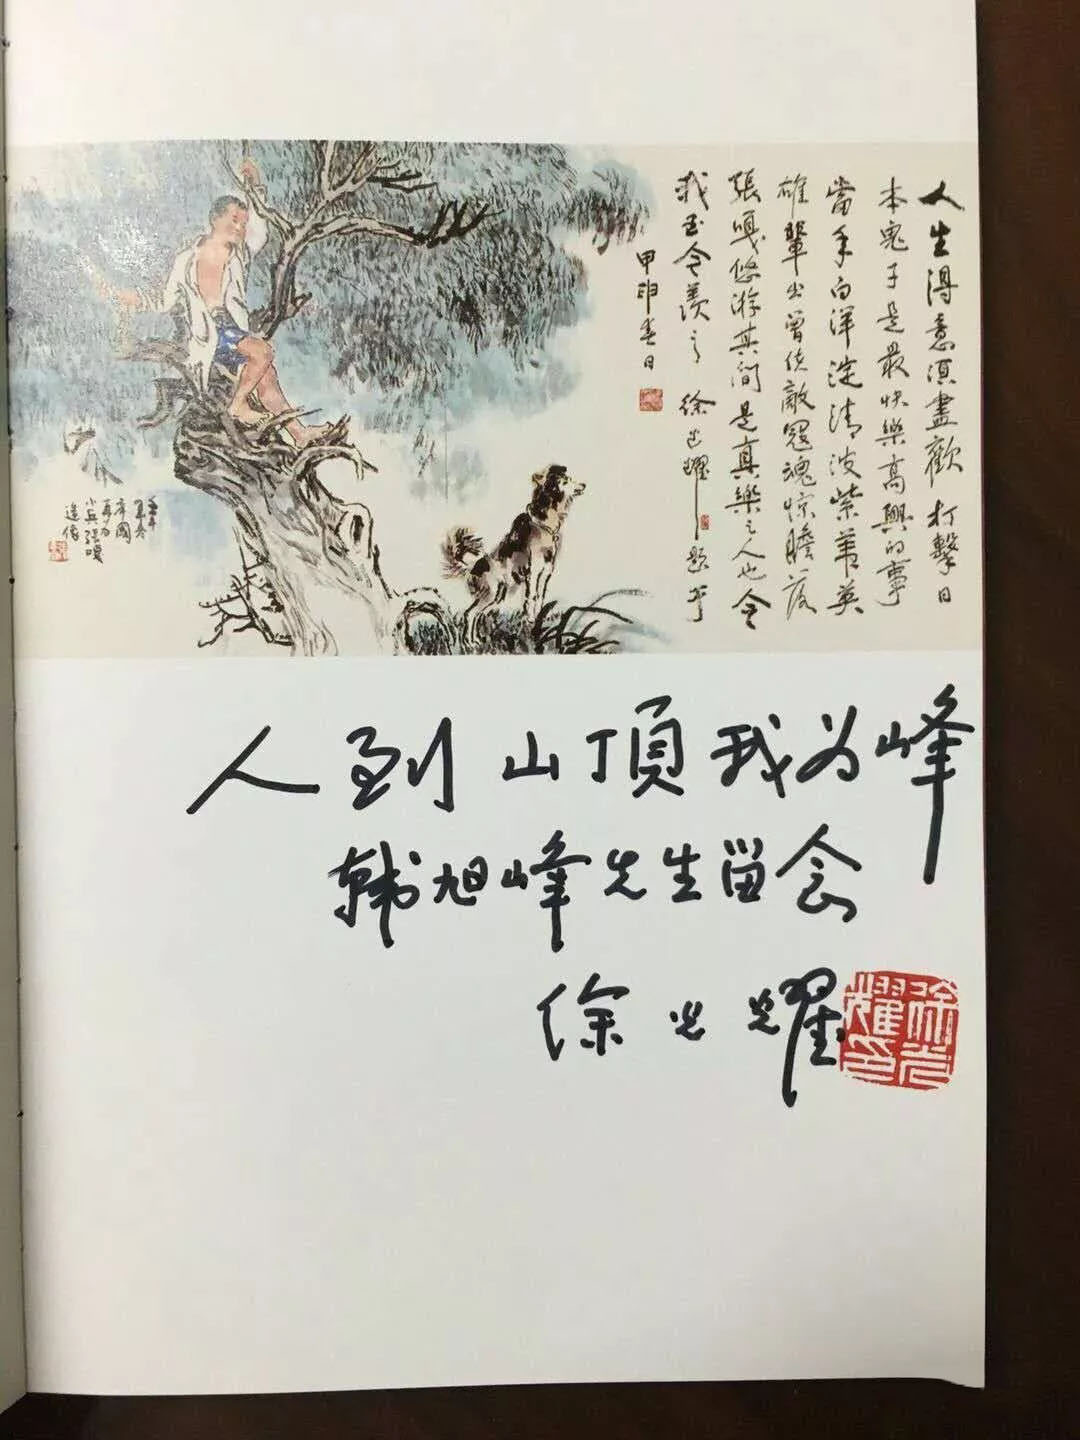 人生得意须尽歡 打擊日
本鬼子是最快樂高興的事
當年白洋淀清波紫葦英
雄輩出曾使敵寇魂惊膽落
張嘎悠游其间是真樂之人也令
我至今羡之 徐光耀 题于
甲申春日
小兵张嘎
造像
人到山顶我为峰
韩旭峰先生留念
徐光耀
徐光耀印